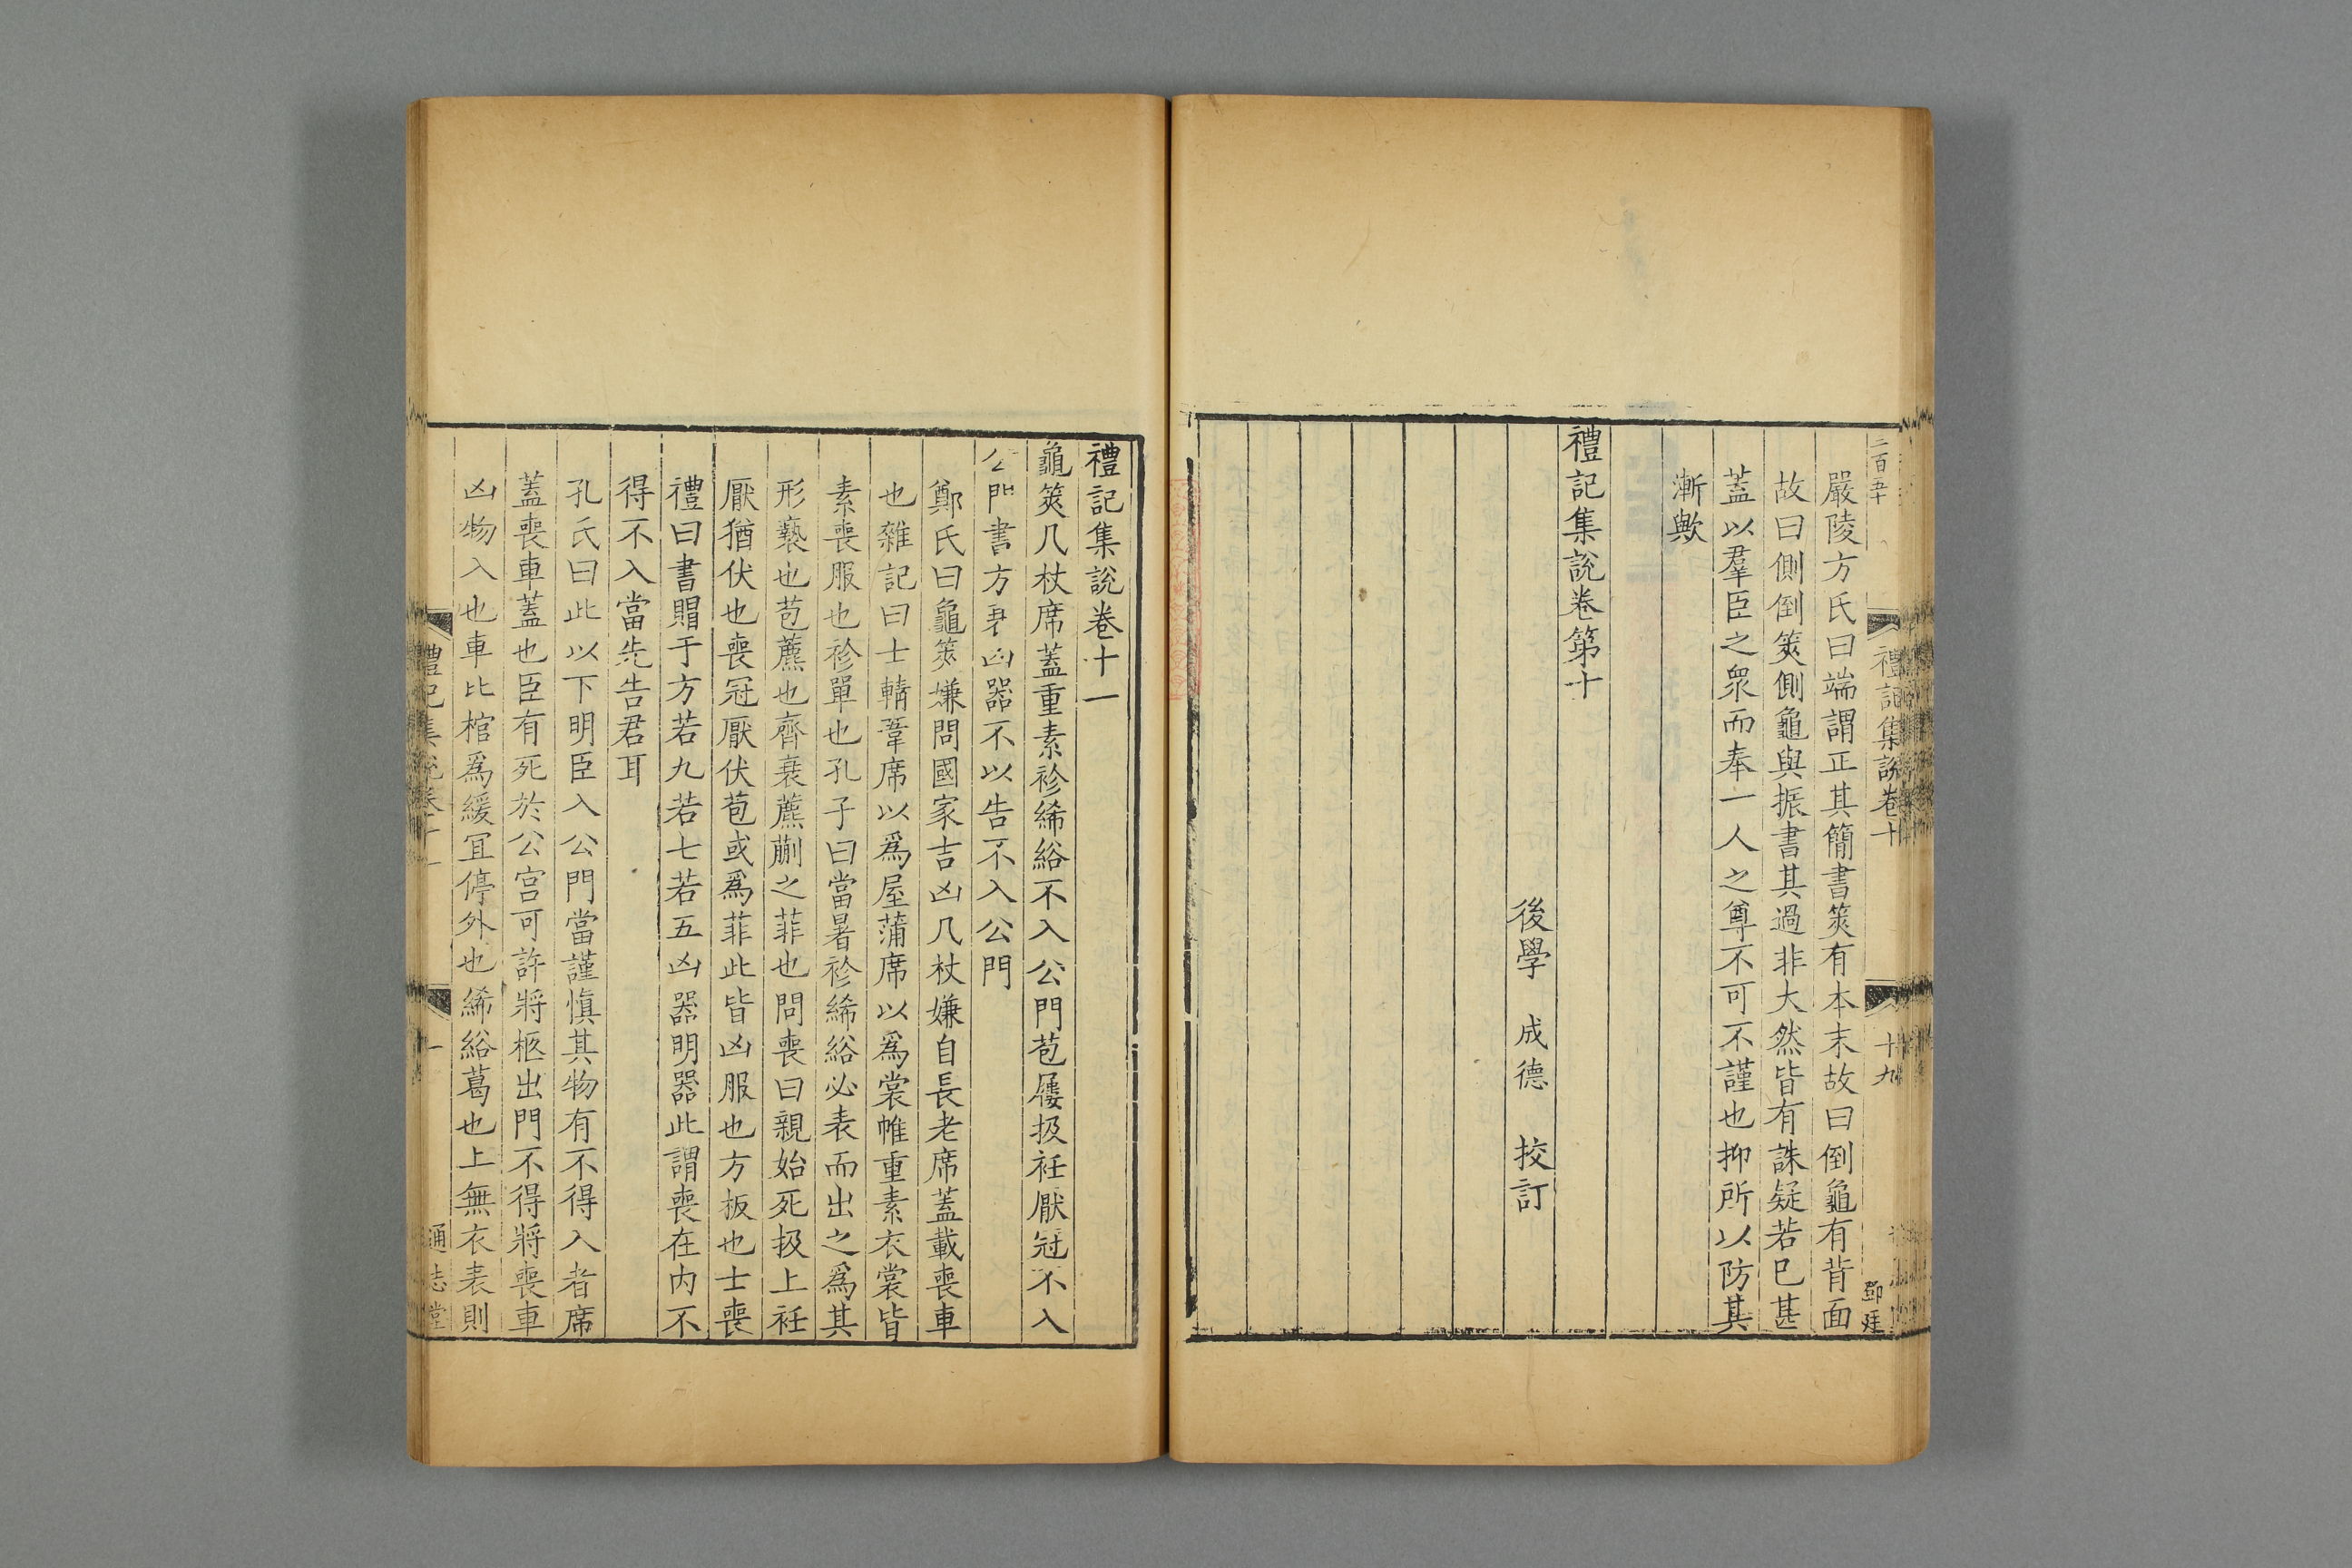 二百五十
禮記集說卷十
十九
鄧珽
嚴陵方氏曰端謂正其簡書筴有本末故曰倒龜有背面
故曰側倒筴側龜與振書其過非大然皆有誅疑若已甚
蓋以羣臣之眾而奉一人之尊不可不謹也抑所以防其
漸歟
禮記集說卷第十
後學 成德 挍訂
禮記集說卷十一
龜筴几杖席蓋重素袗絺綌不入公門苞屨扱衽厭冠不入
公門書方衰凶器不以告不入公門
鄭氏曰龜筴嫌問國家吉凶几杖嫌自長老席蓋載喪車
也雜記曰士輤葦席以爲屋蒲席以爲裳帷重素衣裳皆
素喪服也袗單也孔子曰當暑袗絺綌必表而出之爲其
形褻也苞藨也齊衰藨蒯之菲也問喪曰親始死扱上衽
厭猶伏也喪冠厭伏苞或爲菲此皆凶服也方板也士喪
禮曰書賵于方若九若七若五凶器明器此謂喪在內不
得不入當先告君耳
孔氏曰此以下明臣入公門當謹慎其物有不得入者席
蓋喪車蓋也臣有死於公宮可許將柩出門不得將喪車
凶物入也車比棺爲緩宜停外也絺綌葛也上無衣表則
禮記集說卷十一
一
通志堂